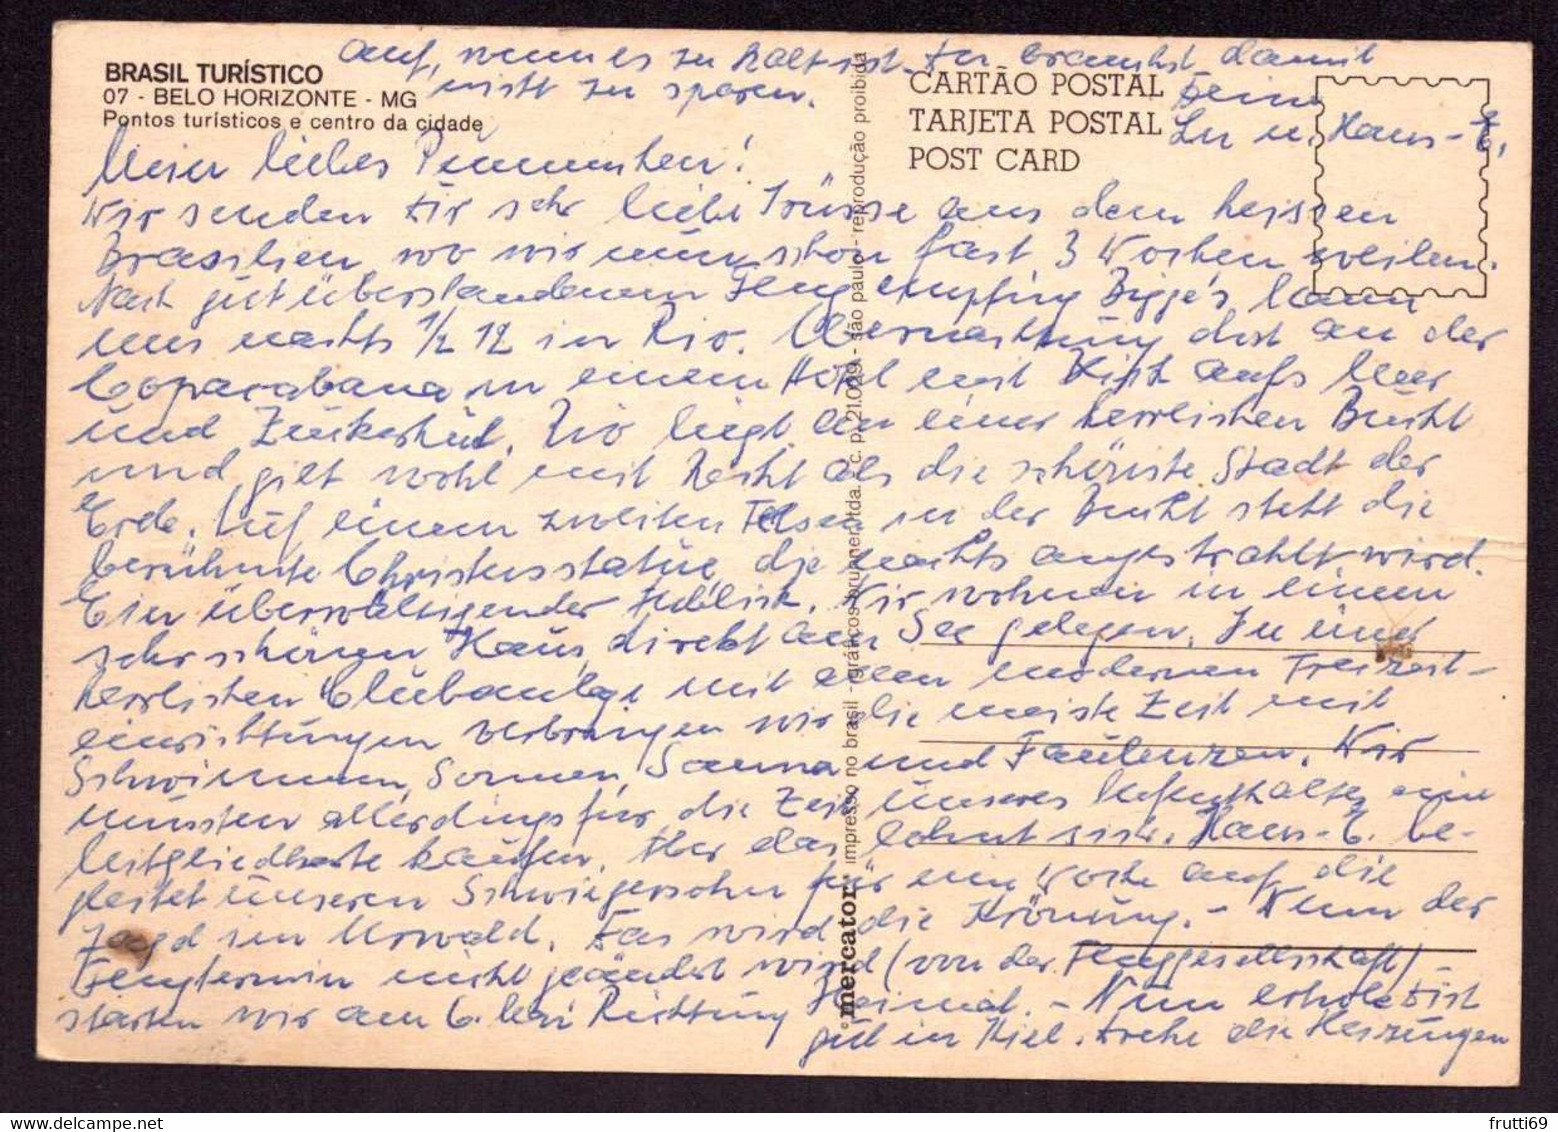 BRASIL TURÍSTICO
07 - BELO HORIZONTE - MG
Pontos turísticos e centro da cidade
CARTÃO POSTAL
TARJETA POSTAL
POST CARD
Mein liebes
Wir senden Dir sehr liebe Grüsse aus dem heissen
Brasilien wo wir nun schon fast 3 Wochen weilen.
Nach gut überstandenem Flug empfing Bigge's Mann
uns nachts 1/2 12 in Rio. Übernachtung dort an der
Copacabana in einem Hotel mit Sicht aufs Meer
und Zuckerhut. Rio liegt an einer herrlichen Bucht
und gilt wohl mit Recht als die schönste Stadt der
Erde. Auf einem zweiten Felsen in der Bucht steht die
berühmte Christusstatue, die nachts angestrahlt wird.
Ein überwältigender Anblick. Wir wohnen in einem
sehr schönen Haus, direkt am See gelegen. In einer
herrlichen Clubanlage mit allen modernen Freizeit-
einrichtungen verbringen wir die meiste Zeit mit
Schwimmen, Sonnen, Sauna und Faulenzen. Wir
mussten allerdings für die Zeit unseres Aufenthaltes eine
Mitgliedkarte kaufen. Aber das lohnt sich. Hans-E. be-
gleitet unseren Schwiegersohn für eine Woche auf die
Jagd im Urwald. Das wird die Krönung. - Wenn der
Flugtermin nicht geändert wird (von der Fluggesellschaft)
starten wir am 6. Richtung Heimat. - Nun erhole Dich
gut in Kiel. Drehe die Heizungen
auf, wenn es zu kalt ist. Du brauchst damit
nicht zu sparen.
Deine
Lu u. Hans-E.
mercator impresso no brasil - gráficos brunner ltda. - c. p. 21.029 - são paulo - reprodução proibida
frutti69